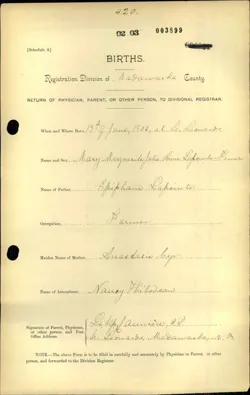 420.
02 03 003899
[Schedule A]
BIRTHS.
Registration Division of Madawaska County.
RETURN OF PHYSICIAN, PARENT, OR OTHER PERSON, TO DIVISIONAL REGISTRAR.
When and Where Born, 13th June, at St. Leonards
Name and Sex, Mary
Name of Father, Epiphane Lapointe
Occupation, Farmer
Maiden Name of Mother, Cyr
Name of Accoucheur, Nancy Thibodeau
Signature of Parent, Physician,
or other person, and Post
Office Address
St. Leonards, Madawaska, N. B.
NOTE.—The above Form is to be filled in carefully and accurately by Physician or Parent, or other
person, and forwarded to the Division Registrar.